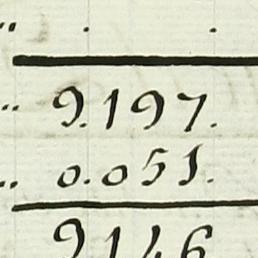 9.197.
0.051.
9146